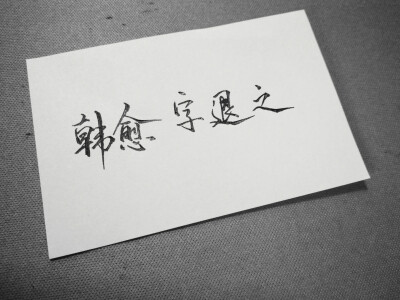 韩愈 字退之